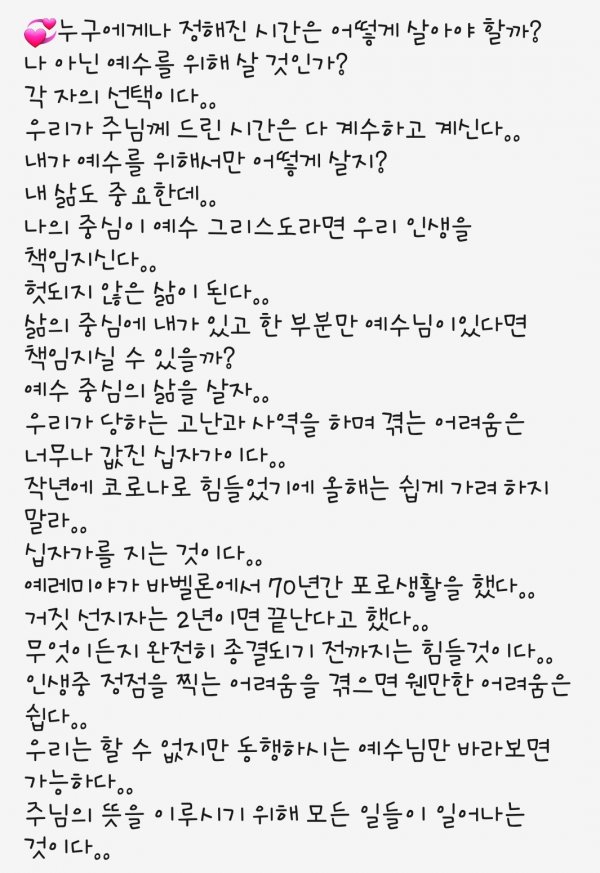 💞누구에게나 정해진 시간은 어떻게 살아야 할까?
나 아닌 예수를 위해 살 것인가?
각 자의 선택이다。。
우리가 주님께 드린 시간은 다 계수하고 계신다。。
내가 예수를 위해서만 어떻게 살지?
내 삶도 중요한데。。
나의 중심이 예수 그리스도라면 우리 인생을
책임지신다。。
헛되지 않은 삶이 된다。。
삶의 중심에 내가 있고 한 부분만 예수님이있다면
책임지실 수 있을까?
예수 중심의 삶을 살자。。
우리가 당하는 고난과 사역을 하며 겪는 어려움은
너무나 값진 십자가이다。。
작년에 코로나로 힘들었기에 올해는 쉽게 가려 하지
말라。。
십자가를 지는 것이다。。
예레미야가 바벨론에서 70년간 포로생활을 했다。。
거짓 선지자는 2년이면 끝난다고 했다。。
무엇이든지 완전히 종결되기 전까지는 힘들것이다。。
인생중 정점을 찍는 어려움을 겪으면 웬만한 어려움은
쉽다。。
우리는 할 수 없지만 동행하시는 예수님만 바라보면
가능하다。。
주님의 뜻을 이루시기 위해 모든 일들이 일어나는
것이다。。